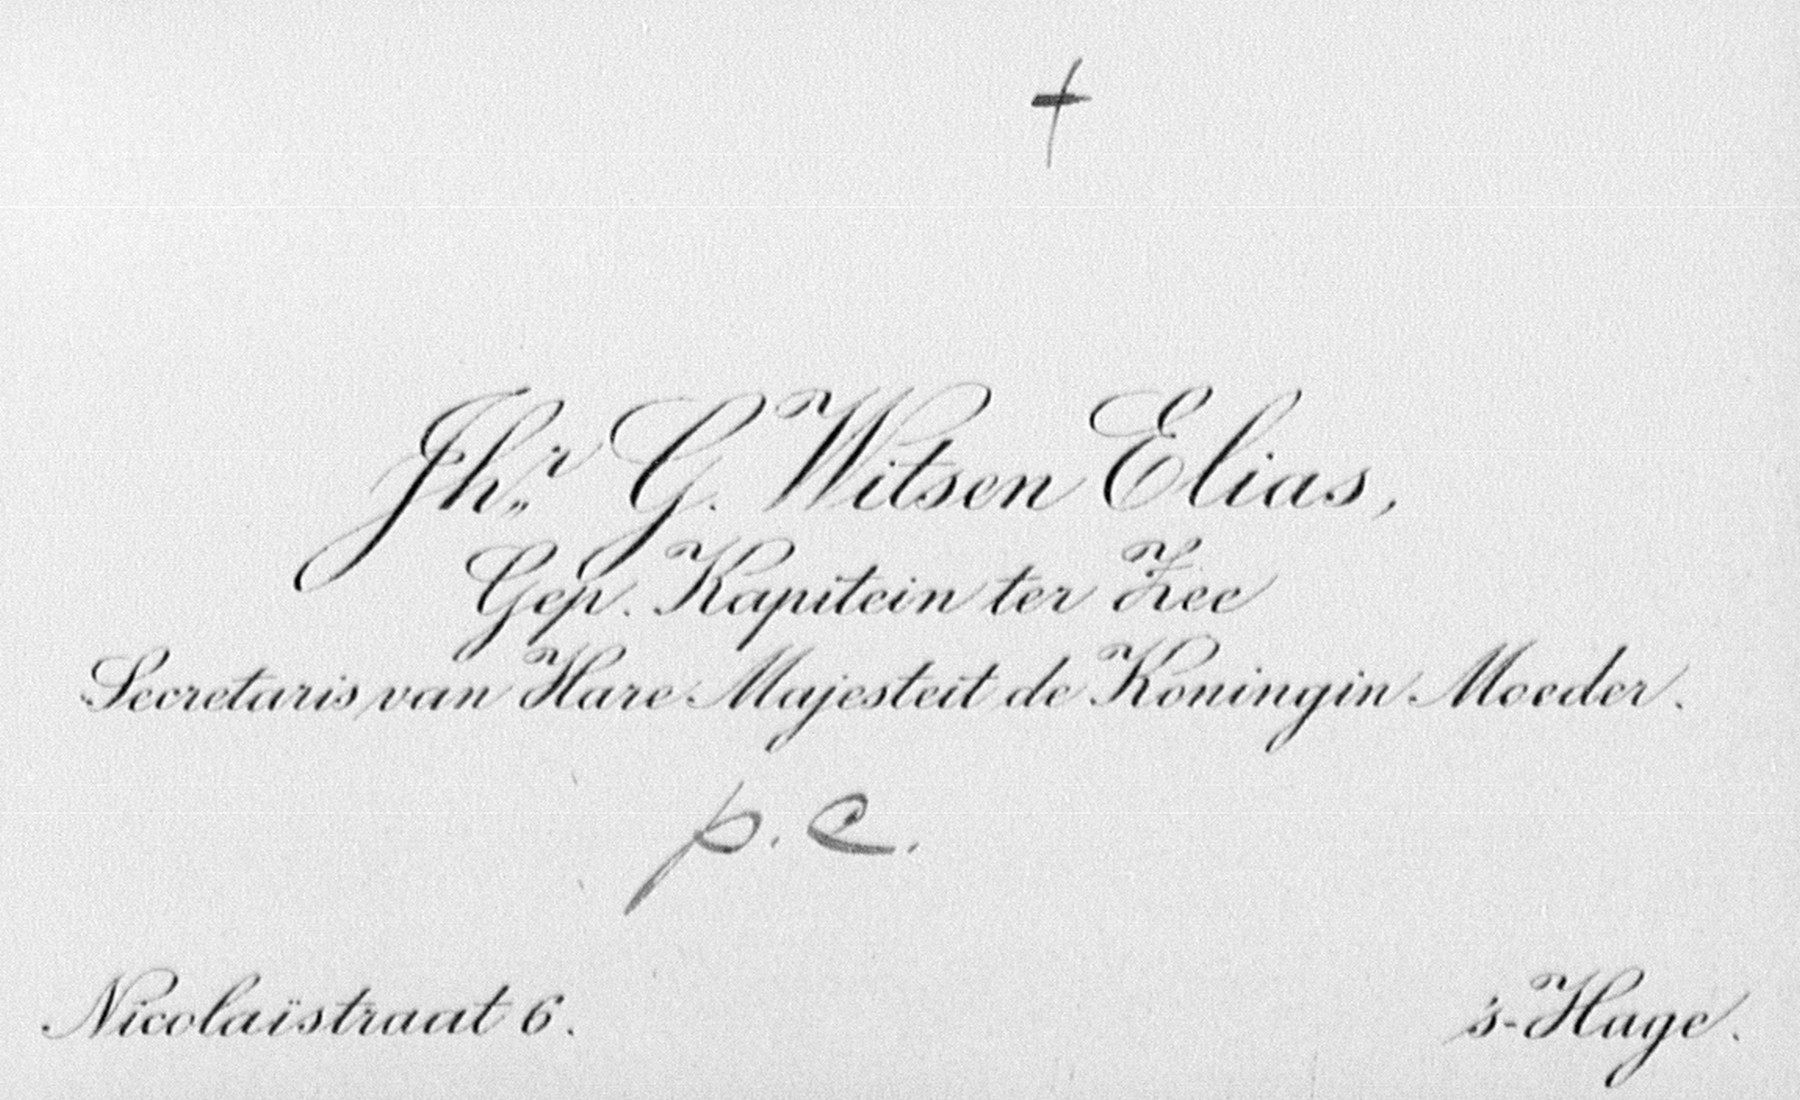 †
Jhr. G. Witsen Elias,
Gep. Kapitein ter Zee
Secretaris van Hare Majesteit de Koningin Moeder.
p.c.
Nicolaïstraat 6. 's-Hage.